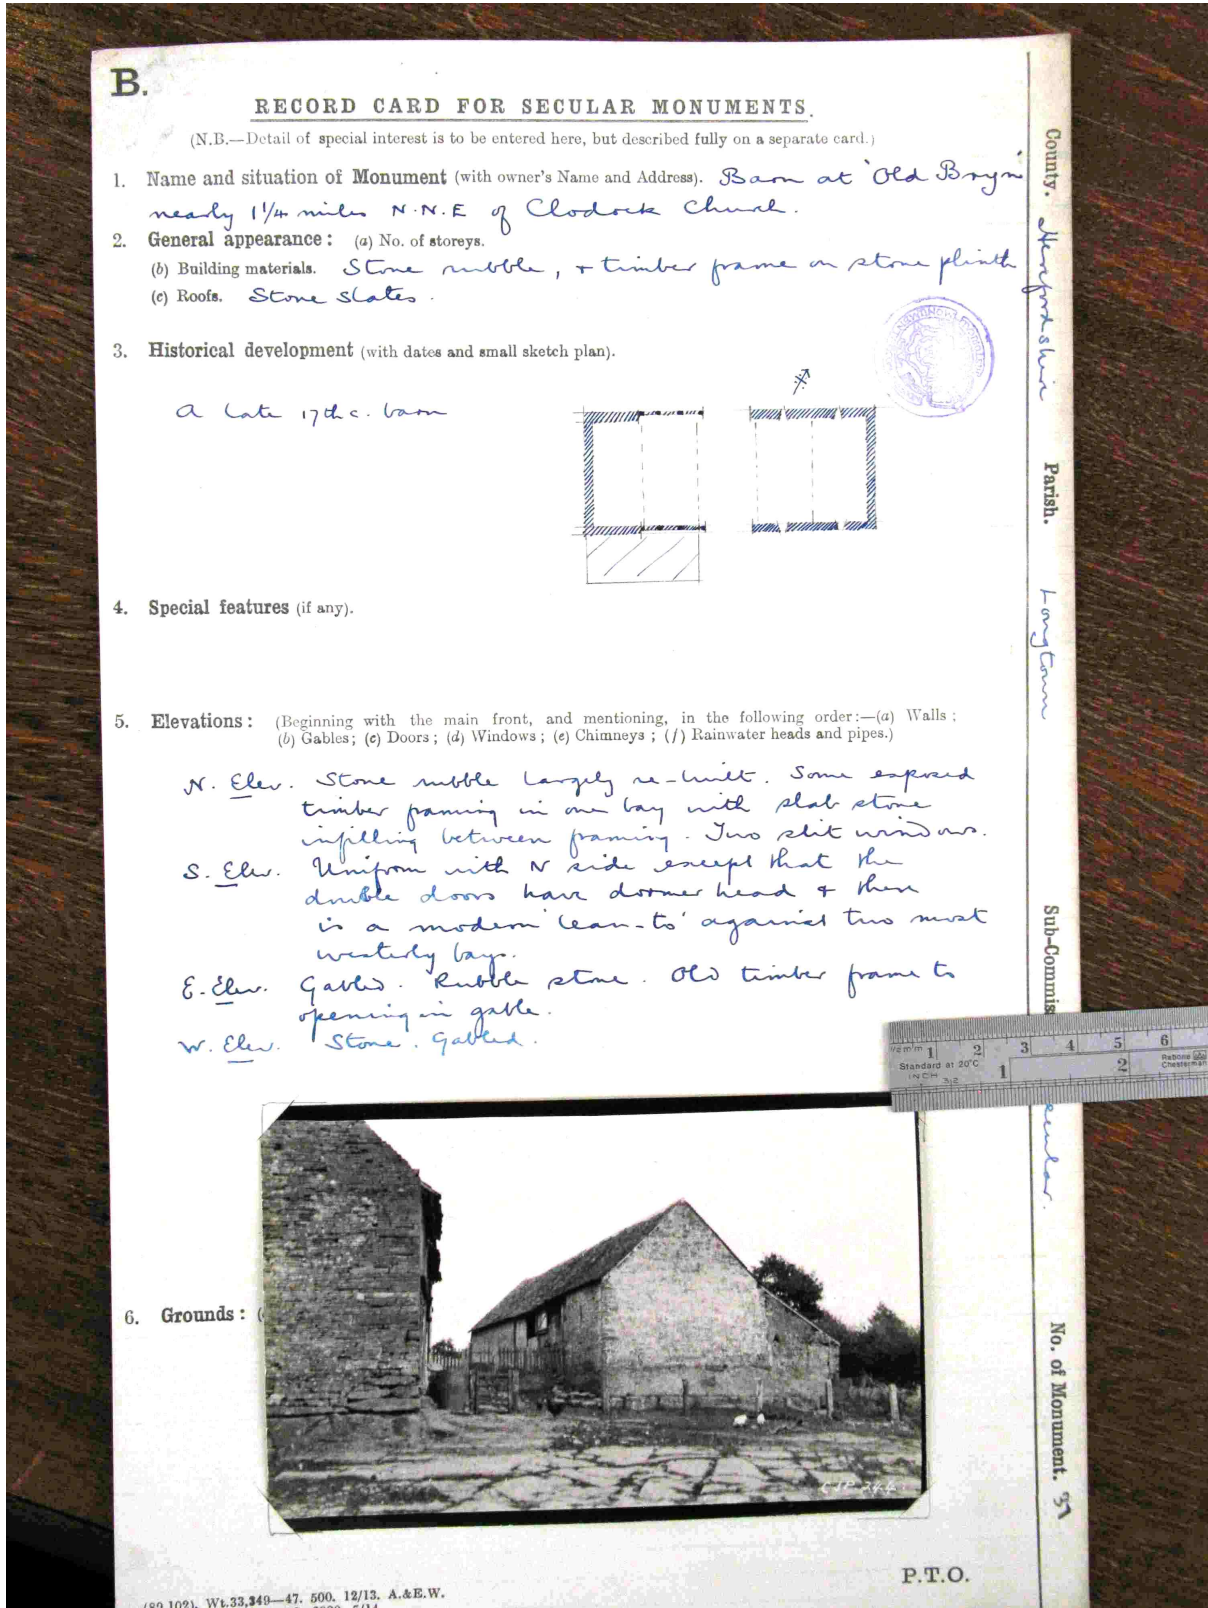 B.
RECORD CARD FOR SECULAR MONUMENTS.
(N.B.—Detail of special interest is to be entered here, but described fully on a separate card.)
1. Name and situation of Monument (with owner's Name and Address). Barn at 'Old Bryn'
nearly 1 1/4 miles N.N.E of Clodock Church.
2. General appearance: (a) No. of storeys.
(b) Building materials. Stone rubble, + timber frame on stone plinth
(c) Roofs. Stone slates.
3. Historical development (with dates and small sketch plan).
A late 17th c. barn
4. Special features (if any).
5. Elevations: (Beginning with the main front, and mentioning, in the following order:—(a) Walls;
(b) Gables; (c) Doors; (d) Windows; (e) Chimneys; (f) Rainwater heads and pipes.)
N. Elev. Stone rubble largely re-built. Some exposed
timber framing in one bay with slab stone
infilling between framing. Two slit windows.
S. Elev. Uniform with N side except that the
double doors have dormer head + there
is a modern 'lean-to' against two most
westerly bays.
E. Elev. Gabled. Rubble stone. Old timber frame to
opening in gable.
W. Elev. Stone. Gabled.
6. Grounds: (
P.T.O.
(89,102). Wt.33,349—47. 500. 12/13. A.&E.W.
County. Herefordshire Parish. Longtown Sub-Commis ecular. No. of Monument. 37
1 2 3 4 5 6
Standard at 20°C
INCH 32 1 2
Rabone
Chesterman